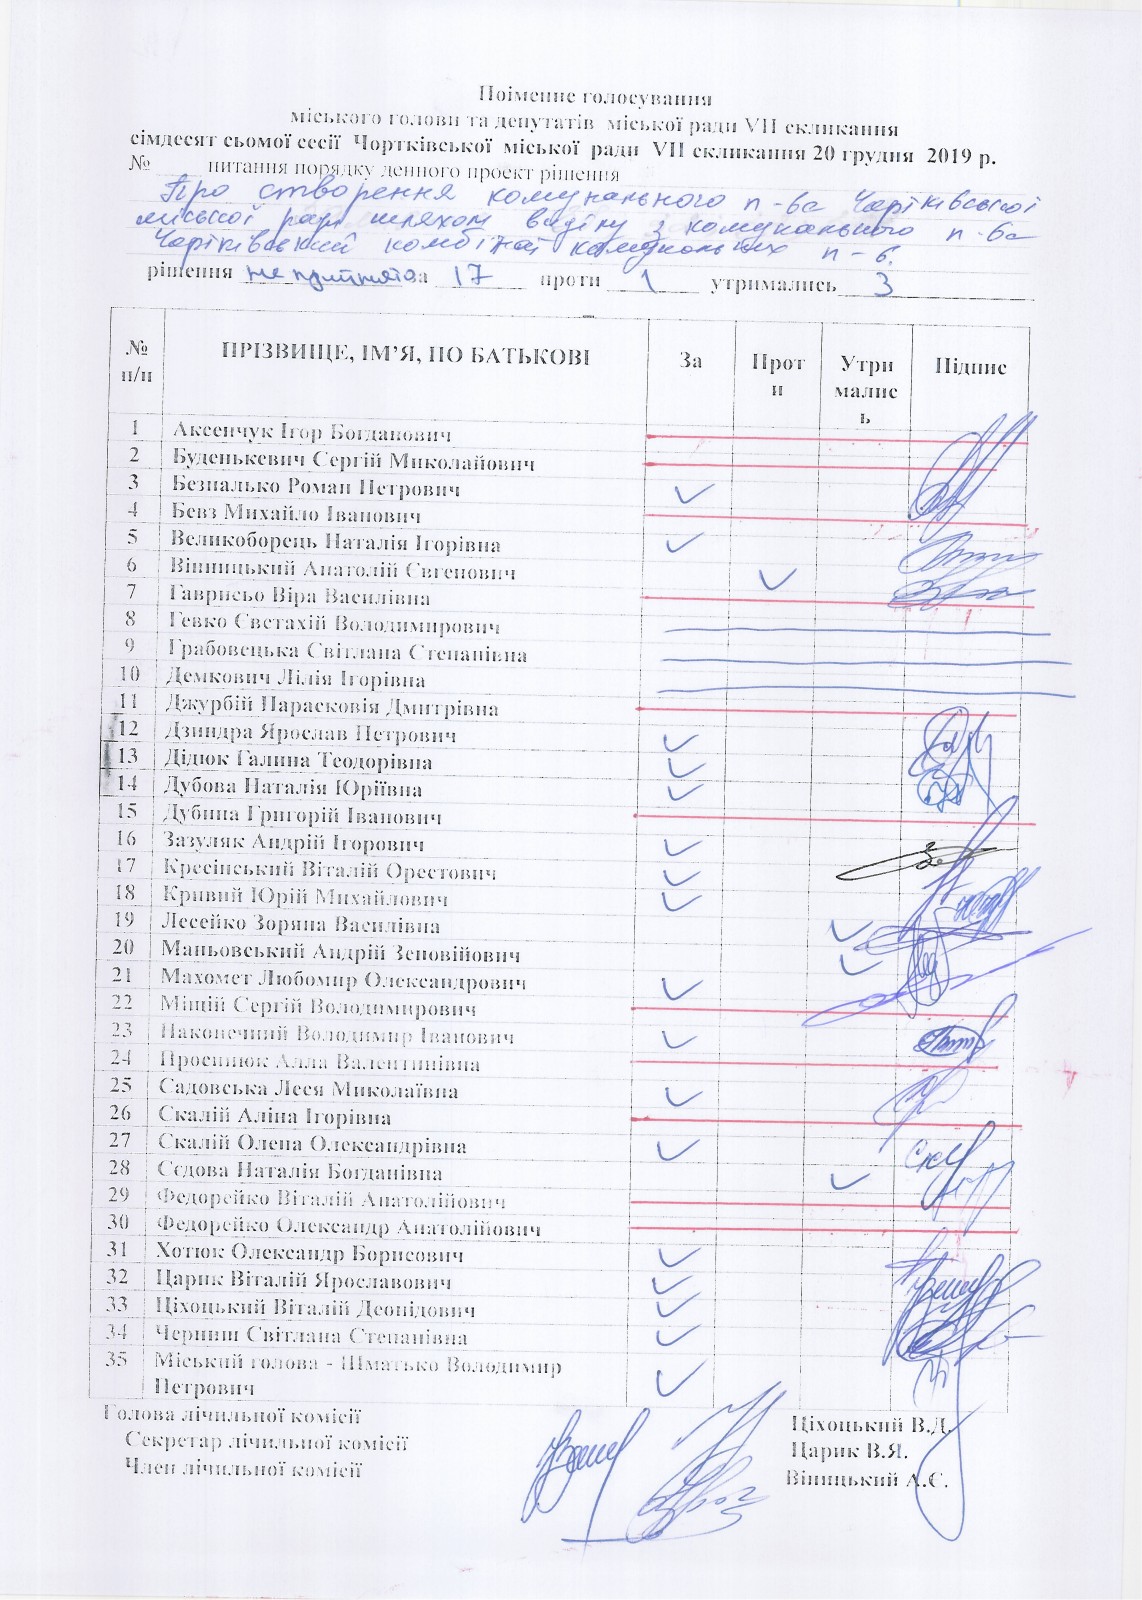 Поіменне голосування
міського голови та депутатів міської ради VII скликання
сімдесят сьомої сесії Чортківської міської ради VII скликання 20 грудня 2019 р.
№ питання порядку денного проект рішення
Про створення комунального п-ва Чортківської
міської ради шляхом виділу з комунального п-ва
Чортківський комбінат комунальних п-в.
рішення не прийнято за 17 проти 1 утримались 3
№ п/п ПРІЗВИЩЕ, ІМ'Я, ПО БАТЬКОВІ За Проти Утримались Підпис
1 Аксенчук Ігор Богданович
2 Буденькевич Сергій Миколайович
3 Безпалько Роман Петрович ✓
4 Бевз Михайло Іванович
5 Великоборець Наталія Ігорівна ✓
6 Вінницький Анатолій Євгенович ✓
7 Гаврисьо Віра Василівна
8 Гевко Євстахій Володимирович
9 Грабовецька Світлана Степанівна
10 Демкович Лілія Ігорівна
11 Джурбій Парасковія Дмитрівна
12 Дзиндра Ярослав Петрович ✓
13 Дідюк Галина Теодорівна ✓
14 Дубова Наталія Юріївна ✓
15 Дубина Григорій Іванович
16 Зазуляк Андрій Ігорович ✓
17 Кресінський Віталій Орестович ✓
18 Кривий Юрій Михайлович ✓
19 Лесейко Зоряна Василівна ✓
20 Маньовський Андрій Зеновійович ✓
21 Махомет Любомир Олександрович ✓
22 Міщій Сергій Володимирович
23 Наконечний Володимир Іванович ✓
24 Просинюк Алла Валентинівна
25 Садовська Леся Миколаївна ✓
26 Скалій Аліна Ігорівна
27 Скалій Олена Олександрівна ✓
28 Сєдова Наталія Богданівна ✓
29 Федорейко Віталій Анатолійович
30 Федорейко Олександр Анатолійович
31 Хотюк Олександр Борисович ✓
32 Царик Віталій Ярославович ✓
33 Ціхоцький Віталій Деонідович ✓
34 Черниш Світлана Степанівна ✓
35 Міський голова - Шматько Володимир
Петрович ✓
Голова лічильної комісії Ціхоцький В.Д.
Секретар лічильної комісії Царик В.Я.
Член лічильної комісії Вінницький А.Є.